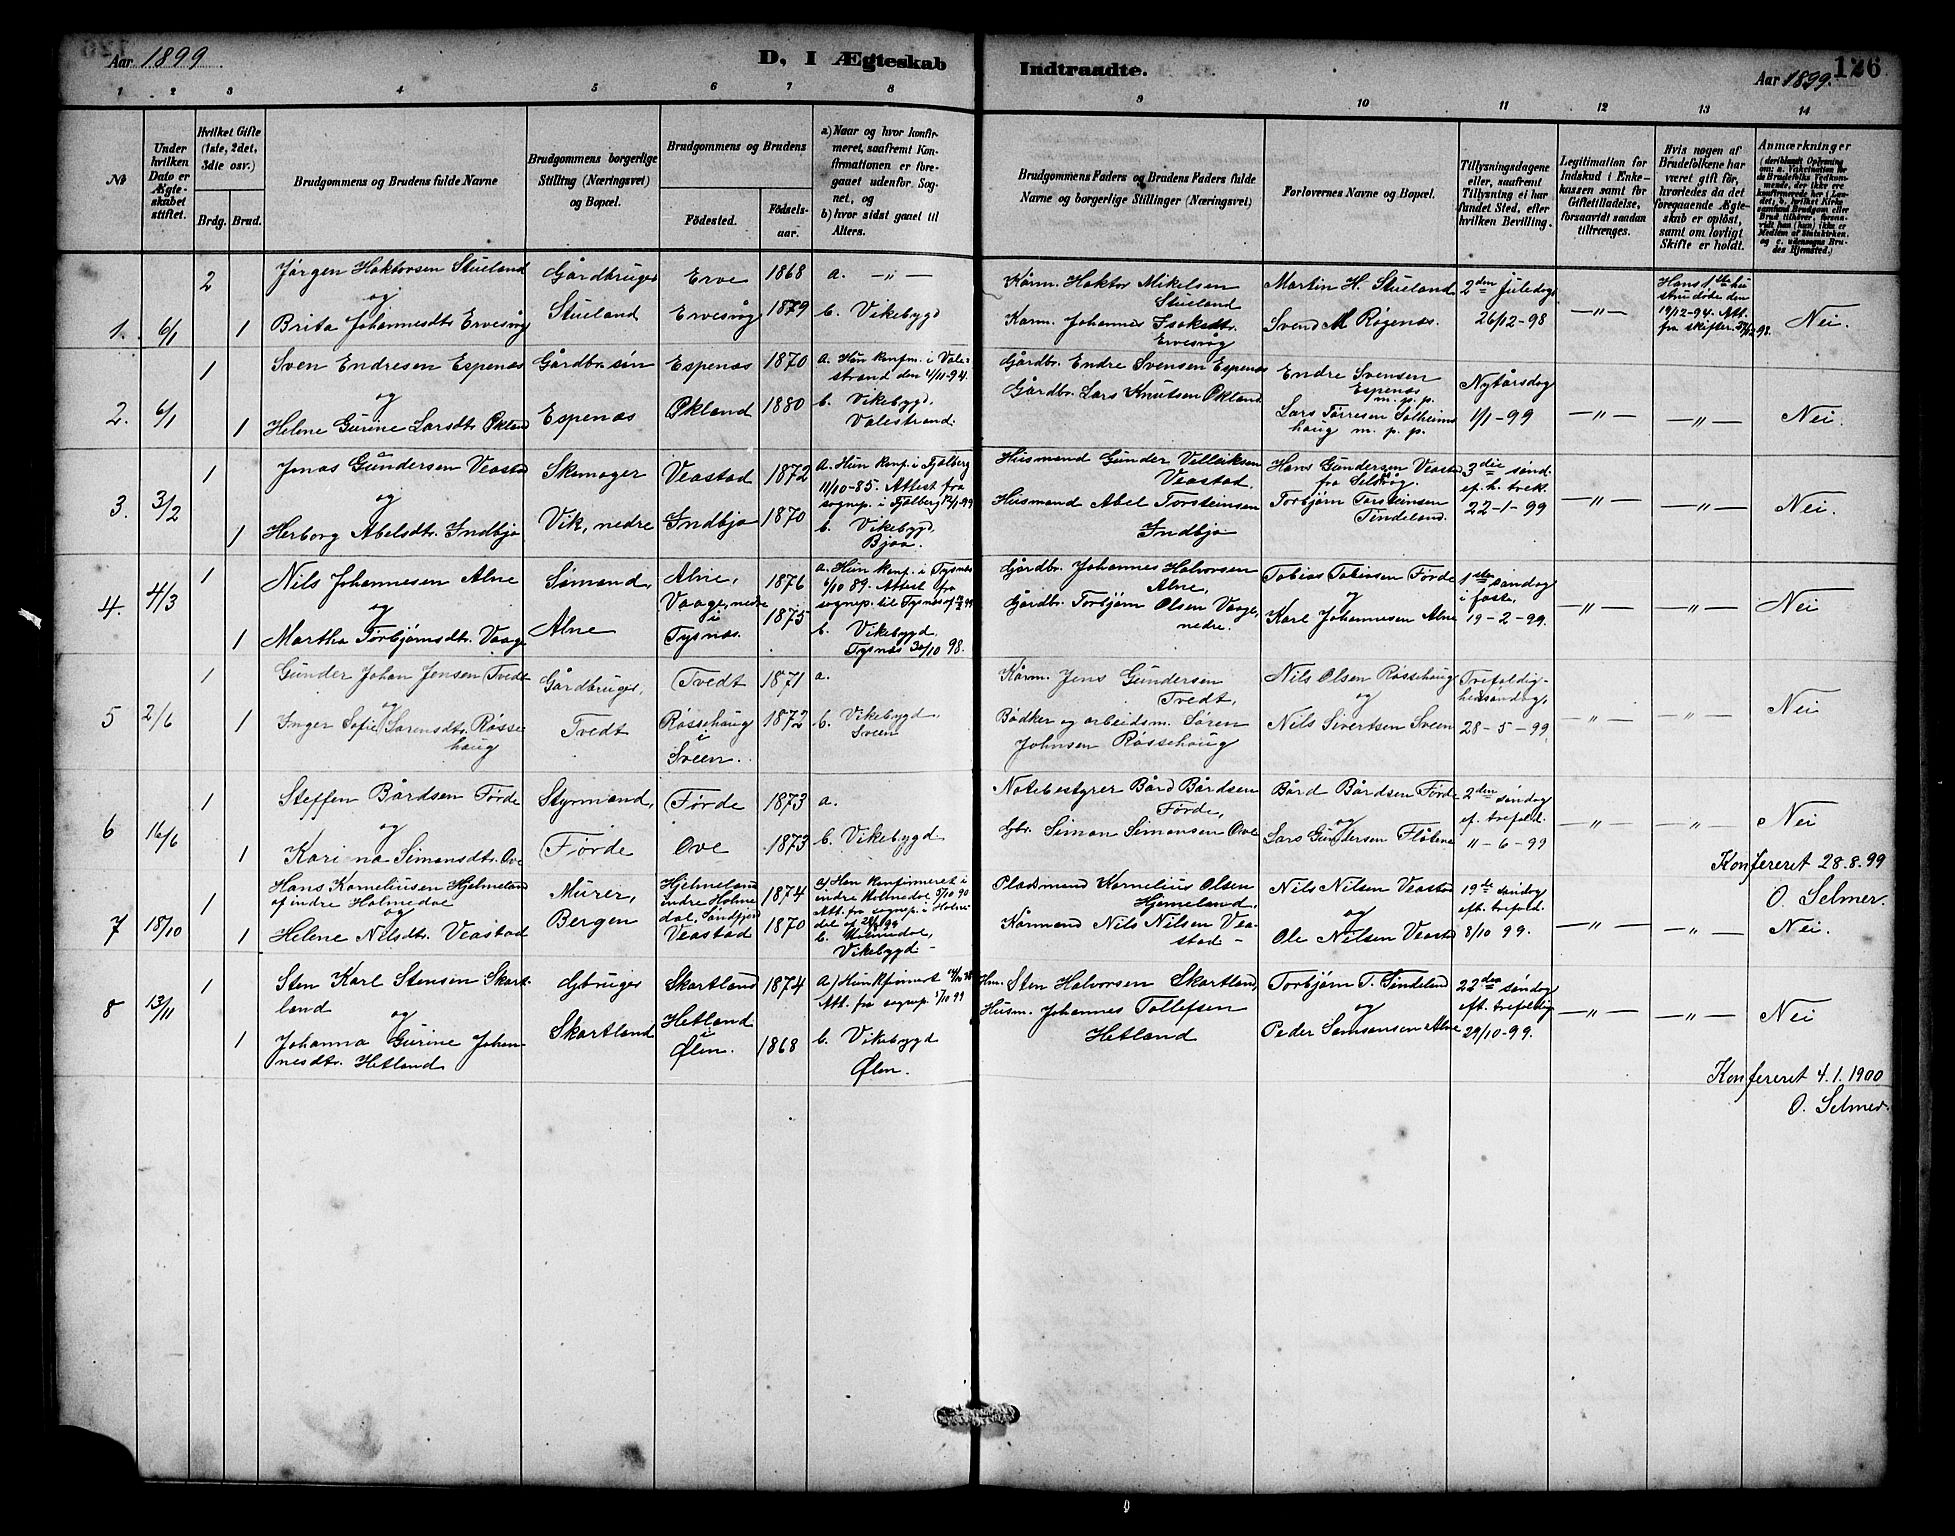 Aar 1899
D, I Ægteskab
Indtraadte.
Aar 1899.
126
1 2 3 4 5 6 7 8 9 10 11 12 13 14
№
Under hvilken Dato er Ægteskabet stiftet.
Hvilket Gifte (1ste, 2det, 3die osv.)
Brdg. Brud.
Brudgommens og Brudens fulde Navne
Brudgommens borgerlige Stilling (Næringsvei) og Bopæl.
Brudgommens og Brudens
Fødested.
Fødselsaar.
a) Naar og hvor konfirmeret, saafremt Konfirmationen er foregaaet udenfor Sognet, og
b) hvor sidst gaaet til Alters.
Brudgommens Faders og Brudens Faders fulde Navne og borgerlige Stillinger (Næringsvei)
Forlovernes Navne og Bopæl.
Tillysningsdagene eller, saafremt Tillysning ei har fundet Sted, efter hvilken Bevilling.
Legitimation for Indskud i Enkekassen samt for Giftetilladelse, forsaavidt saadan tiltrænges.
Hvis nogen af Brudefolkene har været gift før, hvorledes da det foregaaende Ægteskab er opløst, samt om lovligt Skifte er holdt.
Anmærkninger
1. 6/1 2 1
Jørgen Haktorsen Stueland
og
Brita Johannesdt. Ervesvåg
Gårdbruger
Stueland
Erve 1868
Ervesvåg 1879
a. — " —
b. Vikebygd
Kårm. Haktor Mikelsen
Stueland
Karm. Johannes Isaksdt.
Ervesvåg
Martin H. Stueland
Svend M Røgenæs.
2den Juledag
26/12-98
— " —
Hans 1ste hustru døde den
19/12-94. Att.
fra skifter. 98.
Nei.
2. 6/1 1 1
Sven Endresen Espenæs
og
Helene Gurine Larsdt. Økland
Gårdbr. søn
Espenæs
Espenæs 1870
Økland 1880
a. Hun konfm. i Valestrand den 4/11-94.
b. Vikebygd.
Valestrand.
Gårdbr. Endre Svensen Espenæs
Gårdbr. Lars Knutsen Økland
Endre Svensen
Espenæs
m. p. p.
Lars Tørresen Solheimshaug m. p. p.
Nytårsdag
1/1-99
— " — — " — Nei.
3. 3/2 1 1
Jonas Gundersen Veastad
og
Herborg Abelsdt. Indbjo
Skomager
Vik, nedre
Veastad 1872
Indbjo 1870
a. Hun konf. i Fjelberg
11/10-85. Attest fra
sognep. i Fjelberg
b. Vikebygd,
Bjoa.
Husmand Gunder Velleiksen
Veastad.
Husmand Abel Torsteinsen
Indbjo
Hans Gundersen Veastad
fra
Torbjørn Torsteinsen
Tindeland.
3die sønd.
ef. h. trek.
22-1-99
— " — — " — Nei.
4. 4/3 1 1
Nils Johannesen Alne
og
Martha Torbjørnsdt. Vaage
Sømand,
Alne
Alne, 1876
Vaage, nedre
i
Tysnæs. 1875
a. Hun konf. i Tysnæs
6/10 89. Attest fra
sognep. til Tysnæs
b. Vikebygd
Tysnæs 30/10 98.
Gårdbr. Johannes Halvorsen
Alne,
Gårdbr. Torbjørn Olsen Vaage,
nedre.
Tobias Tobiasen Førde
og
Karl Johannesen Alne
1ste søndag
i faste,
19-2-99.
— " — — " — Nei
5 2/6 1 1
Gunder Johan Jensen Tvedt
og
Inger Sofie Sørensdt. Røssehaug
Gårdbruger,
Tvedt
Tvedt 1871
Røssehaug 1872
i
Sveen.
a.
b. Vikebygd.
Sveen
Kårm. Jens Gundersen
Tvedt,
Bødker og arbeidsm. Søren
Johnsen Røssehaug
Nils Olsen Røssehaug
og
Nils Sivertsen Sveen
Trefoldighedssøndag,
28-5-99
— " — — " — Nei
6 16/6 1 1
Steffen Bårdsen Førde
og
Karina Simonsdt. Ove
Styrmand,
Førde
Førde 1873
Ove 1873
a.
b. Vikebygd
Notebestyrer Bård Bårdsen
Førde,
Gbr. Simon Simonsen Ove
Bård Bårdsen Førde
og
Lars Gundersen Flåtene
2den søndag
ef. trefold.
11-6-99
— " — — " — Nei
Konfereret 28.8.99
O. Selmer.
7 18/10 1 1
Hans Korneliusen Hjelmeland
af indre Holmedal
og
Helene Nilsdt. Veastad
Murer,
Bergen
Hjelmeland
indre Holmedal, Søndfjord 1874
Veastad 1870
a) Han konfirmeret i
indre Holmedal 5/10 90
Att. fra sognep. i Holmedal
b. Holmedal,
Vikebygd
Pladsmand Kornelius Olsen
Hjemeland,
Kårmand Nils Nilsen Veastad
Nils Nilsen Veastad
og
Ole Nilsen Veastad
19de søndag
eft. trefold.
8/10 99.
— " — — " — Nei.
8 13/11 1 1
Sten Karl Stensen Skartland
og
Johanna Gurine Johannesdtr. Hetland
Gbruger
Skartland
Skartland 1874
Hetland
i
Ølen. 1868
a) Hun kfirmert
Att. fra sognep. 99
b. Vikebygd
Ølen.
Hm. Sten Halvorsen Skartland,
Husm. Johannes Tollefsen
Hetland
Torbjørn T. Tindeland
og
Peder Samsonsen Alne
22den søndag
eft. trefoldig
29/10-99.
— " — — " — Nei
Konfereret 4.1.1900
O. Selmer.